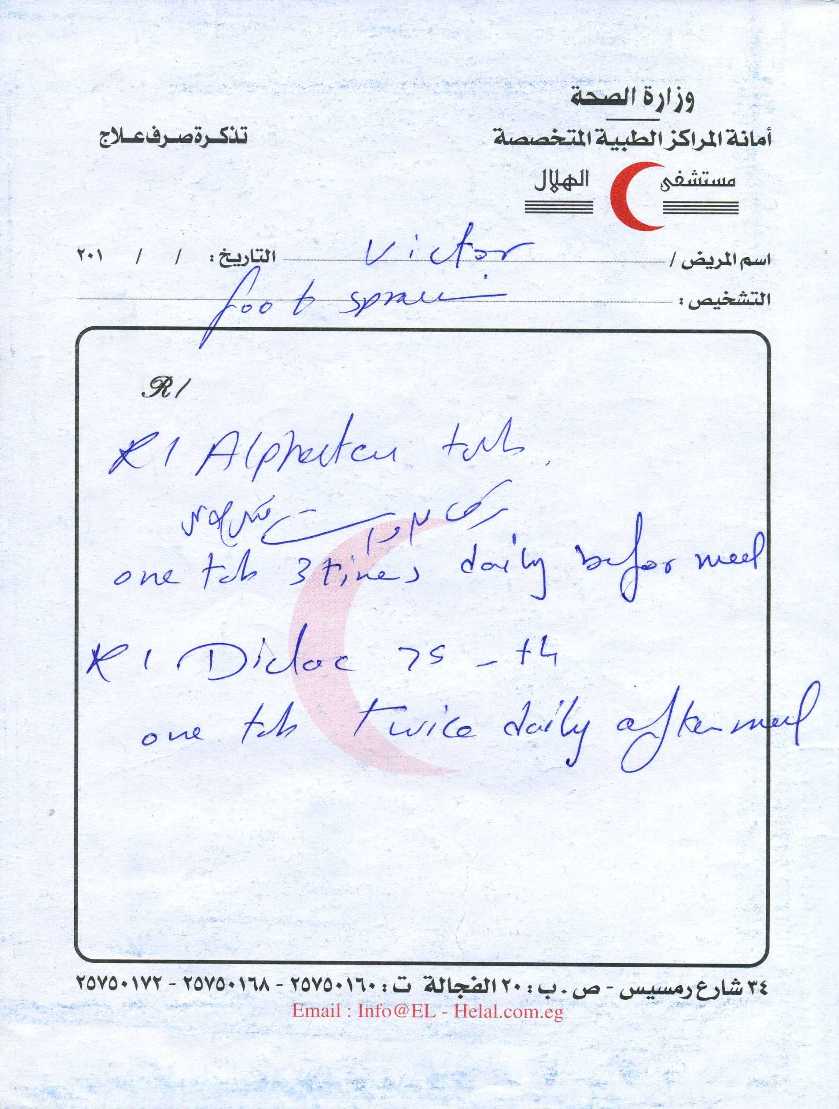 وزارة الصحة
أمانة المراكز الطبية المتخصصة
تذكرة صرف علاج
مستشفى الهلال
اسم المريض / Victor التاريخ : / / ٢٠١
التشخيص : foot sprain
R/
R/ Alphintern tab
one tab 3 times daily befor meel
R/ Diclac 75 - tab
one tab twice daily after meel
٣٤ شارع رمسيس - ص . ب : ٢٠ الفجالة ت : ٢٥٧٥٠١٦٠ - ٢٥٧٥٠١٦٨ - ٢٥٧٥٠١٧٢
Email : Info@EL - Helal.com.eg